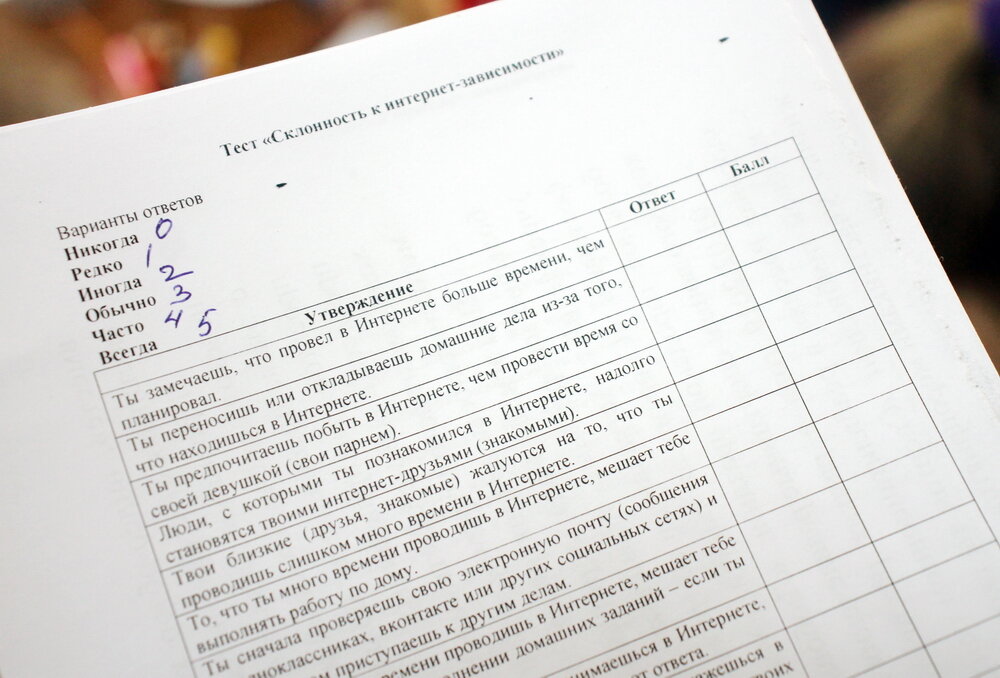 Тест «Склонность к интернет-зависимости»
Варианты ответов
Никогда 0
Редко 1
Иногда 2
Обычно 3
Часто 4
Всегда 5
Утверждение Ответ Балл
Ты замечаешь, что провел в Интернете больше времени, чем
планировал.
Ты переносишь или откладываешь домашние дела из-за того,
что находишься в Интернете.
Ты предпочитаешь побыть в Интернете, чем провести время со
своей девушкой (свои парнем).
Люди, с которыми ты познакомился в Интернете, надолго
становятся твоими интернет-друзьями (знакомыми).
Твои близкие (друзья, знакомые) жалуются на то, что ты
проводишь слишком много времени в Интернете.
То, что ты много времени проводишь в Интернете, мешает тебе
выполнять работу по дому.
Ты сначала проверяешь свою электронную почту (сообщения
одноклассниках, вконтакте или других социальных сетях) и
приступаешь к другим делам.
времени проводишь в Интернете, мешает тебе
домашних заданий – если ты
в Интернете,
ответа.
в